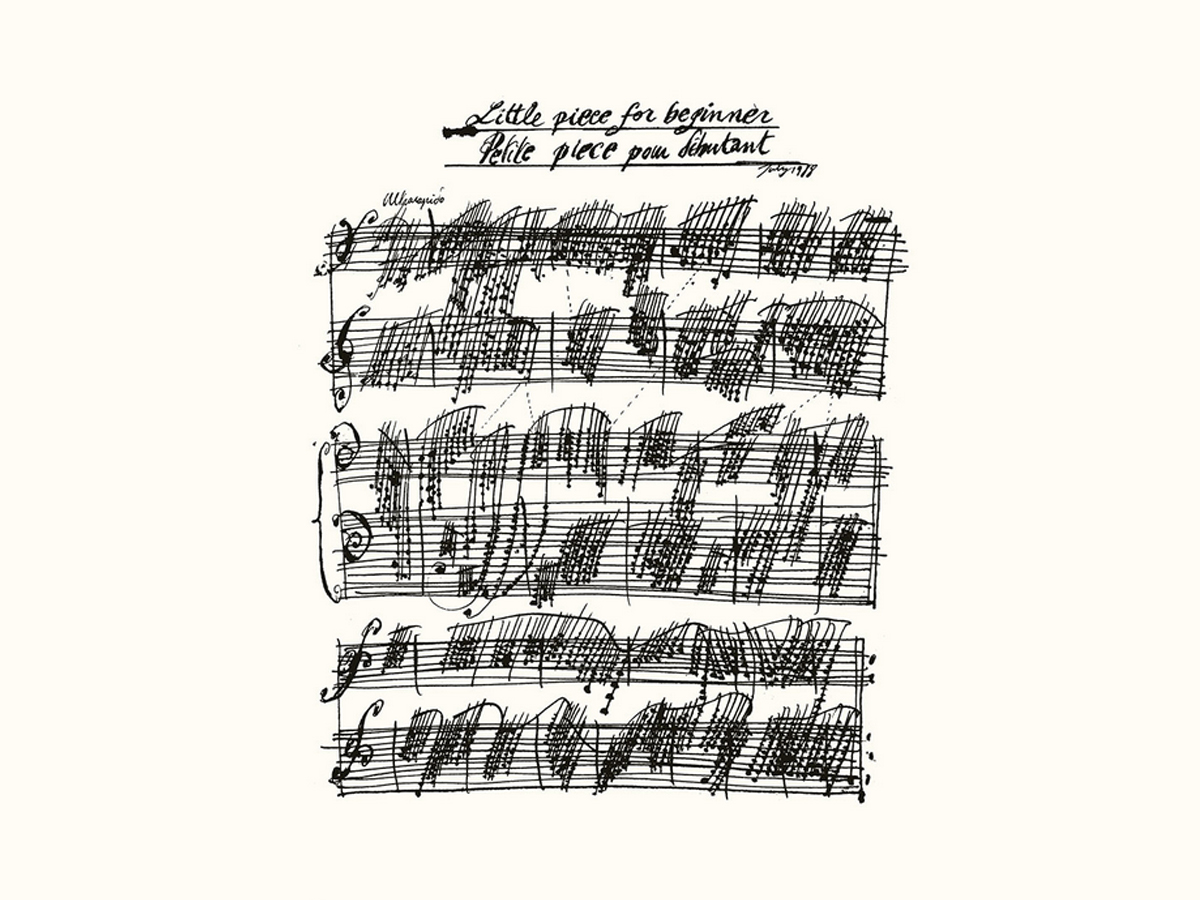 Little piece for beginner
Petite piece pour débutant
July 1978